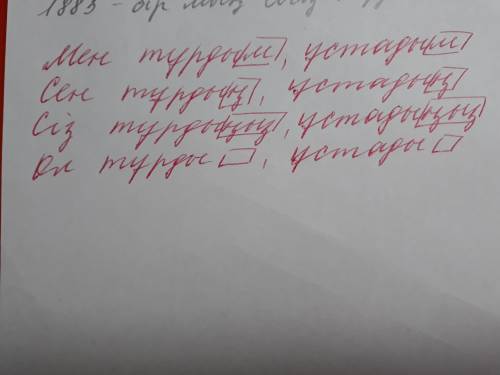 1883 - бір мың
Мен турдым, устадым
Сен турдың, устадың
Сіз турдыңыз, устадыңыз
Ол турды, устады